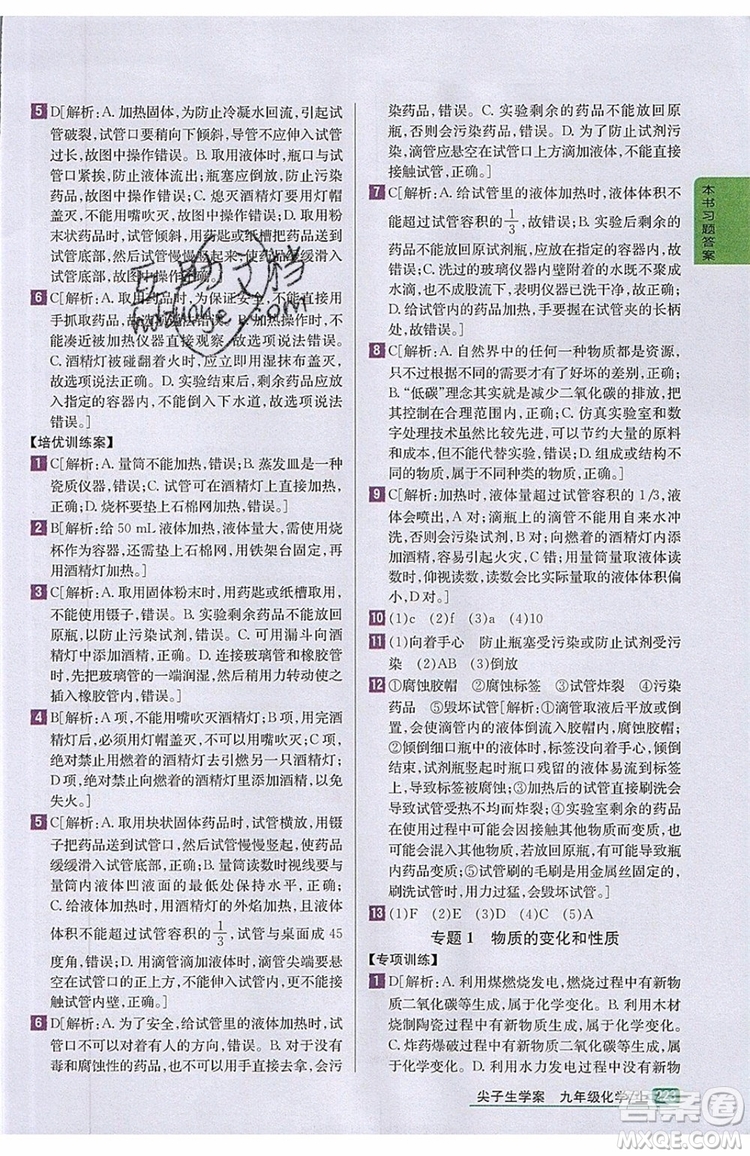 5 D[解析:A. 加热固体,为防止冷凝水回流,引起试
管破裂,试管口要稍向下倾斜,导管不能伸入试管
过长,故图中操作错误。B. 取用液体时,瓶口与试
管口要紧挨,防止液体流出;瓶塞应倒放,防止污
染药品,故图中操作错误。C. 熄灭酒精灯要用灯帽
盖灭,不能用嘴吹灭,故图中操作错误。D. 取用粉
末状药品时,试管倾斜,用药匙或纸槽把药品送到
6 C[解析:A. 取用药品时,为保证安全,不能直接用
手抓取药品,
能凑近被加热仪器直接观察,故本选项说法错误。
C. 酒精灯被碰翻着火时,应立即用湿抹布盖灭,说
法正确。D. 实验结束后,剩余药品应放入
入指定的容器内,不能倒入下水道,故本选项说法
错误。]
【培优训练案】
1 C[解析:A. 量筒不能加热,错误;B. 蒸发皿是一种
瓷质仪器,错误;C. 试管可在酒精灯上直接加热,
正确;D. 烧杯要垫上石棉网加热,错误。]
2 B[解析:给 50 mL 液体加热,液体量大,需用烧
杯作为容器,还要垫上石棉网,用铁架台固定,用酒
精灯加热。]
3 D[解析:A. 取用固体粉末时,用药匙或纸槽取用,
不能使用镊子,错误。B. 实验剩余药品不能放回
原瓶,以防止污染试剂,错误。C. 可用漏斗向酒精
灯中添加酒精,错误。D. 连接玻璃管和橡胶管
时,应先将玻璃管的一端润湿,然后稍稍用力转动
插入橡胶管内,正确。]
4 B[解析:A 项,不能用嘴吹灭酒精灯;B 项,用完酒
精灯后,必须用灯帽盖灭,不可以用嘴去吹;C 项,
绝对禁止用酒精灯去引燃另一盏酒精灯;D 项,
绝对禁止向燃着的酒精灯里添加酒精,以免
失火。]
5 C[解析:A. 取用块状固体药品时,试管横放,用镊
子把药品送到试管口,然后试管慢慢竖起,使药品
缓缓滑入试管底部,正确;B. 量筒读数时视线要与
量筒内液体凹液面的最低处保持水平,正确;
C. 加热液体药品时,用酒精灯的外焰加热,且液
体体积不能超过试管容积的 1/3,试管与桌面成 45
度角,错误;D. 使用滴管滴液时,滴管尖端需要竖
直悬空在试管口的正上方,不能倾斜,不能伸入
试管内或接触试管内壁,正确。]
6 D[解析:A. 为了安全,给试管里的液体加热时,试
管口不可以对着有人的方向,错误。B. 对于没有
毒和腐蚀性的药品,也不能直接用手接触,以防污
染药品,错误。C. 实验剩余的药品不能放回原
瓶,否则会污染药品,错误。D. 为了防止试剂污
染,滴管应悬空在试管口上方滴加液体,不能
接触试管,正确。]
7 C[解析:A. 给试管里的液体加热时,液体体积不
能超过试管容积的 1/3,故错误;B. 实验后剩余的
药品不能放回原试剂瓶,应放在指定的容器内,故
错误;C. 洗过的玻璃仪器内壁附着的水既不聚成
水滴,也不成股流下,表明仪器已洗干净,故正
确;D. 使用试管夹时,手要握在试管夹的长柄
处,故错误。]
8 C[解析:A. 自然界中的任何一种物质都是资源,
只不过是对该物质的利用有经济利益与环境利
益的好坏的差别,正确;
B.“低碳”理念主要就是减少二氧化碳的排放,把
其作为奥运会的理念,正确;C. 仿真实验室和
微型实验改革的主要目的是为了降低实验的原
料和成本,但不能代替实验,错误;D. 组成或结构
不同的物质,属于不同种物质,正确。]
9 C[解析:加热时,液体量超过试管容积的 1/3,液
体可能冲出,A 对;滴瓶上的滴管不能用自来水冲
洗,否则,会污染药品,C 错;B. 向燃着的酒精灯内
添加酒精可能失火,B 对;用量筒量取液体读
数时,仰视读数,会导致读取的数值比实际体积偏
小,D 对。]
10 (1)c (2)f (3)a (4)10
11 (1)向着手心 防止瓶塞受污染或防止试剂受污
染 (2)AB (3)倒放
12 ①腐蚀胶帽 ②腐蚀标签 ③试管炸裂 ④污染
药品 ⑤毁坏试管[解析:①滴管取液后平放或倒
放,会使滴管内的液体倒流入胶帽内,腐蚀胶帽。
②倾倒细口瓶中的液体时,标签没有向着手心会
使倾倒完毕后瓶口残留的液体易流到标签而导
致标签受腐蚀。③加热后的试管直接刷洗会
导致试管受热不均而炸裂。④实验室剩余的药品
在使用过程中可能会因接触其他物质而导致药
品不纯,如再放回原瓶,会使原试剂
瓶内药品变质。⑤刷试管的毛刷是用金属丝固定的,
刷洗试管时,用力过猛,会毁坏试管。]
13 (1)F (2)D (3)B (4)A (5)C (6)E
专题 1 物质的变化和性质
【专项训练】
1 D[解析:A. 利用煤燃烧发电,燃烧过程中有新物
质二氧化碳等生成,属于化学变化。B. 利用木材
烧制陶瓷过程中有新物质生成,属于化学变化。
C. 炸药爆破过程中有新物质二氧化碳等生成,
属于化学变化。D. 利用水力发电过程中没有新物
本书习题答案
尖子生学案 九年级化学(上) 223
互助文档
huzhage.com
答案圈
MXQE.COM